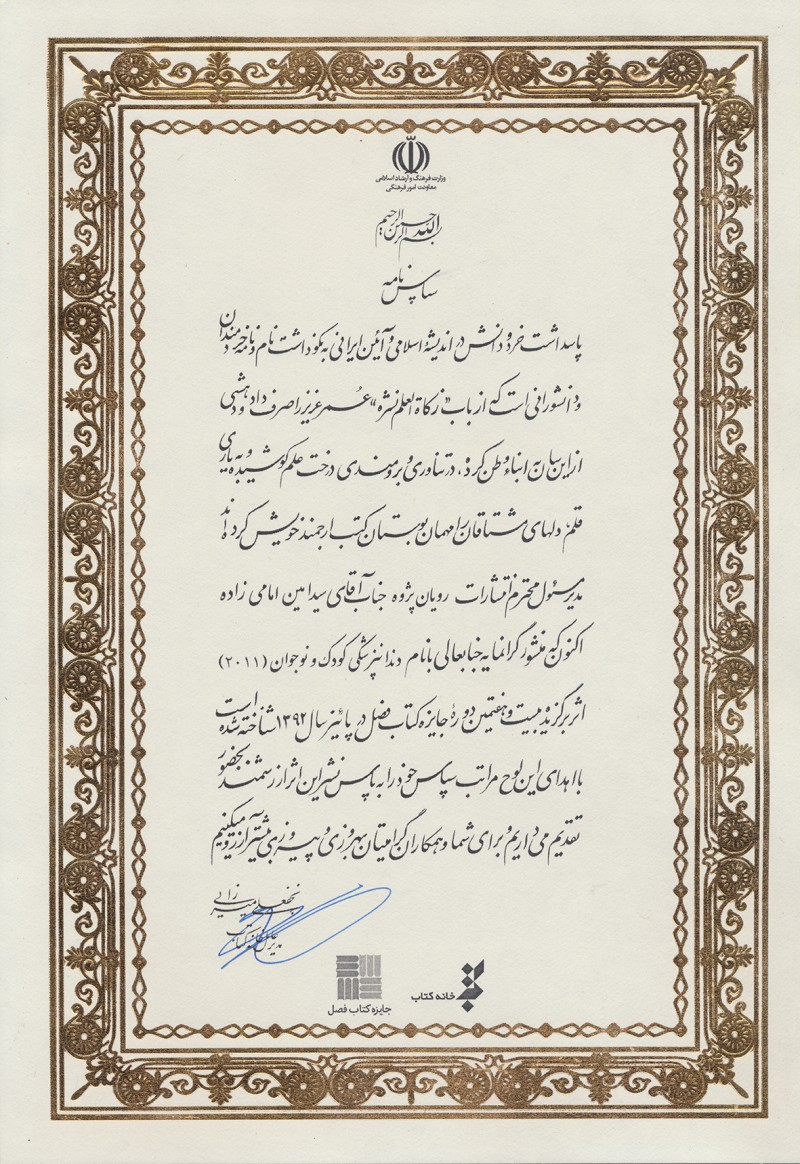 وزارت فرهنگ و ارشاد اسلامی
معاونت امور فرهنگی
بسم الله الرحمن الرحیم
سپاس نامه
پاسداشت خرد و دانش در اندیشهٔ اسلامی و آئین ایرانی به نکوداشت نام و یاد خردمندان
و دانشورانی است که از باب «زکاة العلم نشره» عمر عزیز را صرف داد و دهشی
از این سان به ابناء وطن کرده، در تناوری و برومندی درخت علم کوشیده و به یاری
قلم دلهای مشتاقان را مهمان بوستان کتب ارجمند خویش کرده اند
مدیر مسئول محترم انتشارات رویان پژوه جناب آقای سید امین امامی زاده
اکنون که منشور گرانمایه جنابعالی با نام دندانپزشکی کودک و نوجوان (۲۰۱۱)
اثر برگزیده بیست و هفتمین دورهٔ جایزه کتاب فصل در پائیز سال ۱۳۹۲ شناخته شده است
با اهدای این لوح مراتب سپاس خود را به پاس نشر این اثر ارزشمند بحضور
تقدیم می داریم و برای شما و همکاران گرامیتان بهروزی و پیروزی بیشتر آرزو میکنیم
نجفعلی میرزایی
مدیر عامل خانه کتاب
جایزه کتاب فصل
خانه کتاب